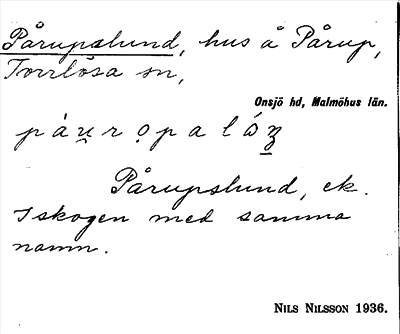 Pårupslund, hus å Pårup,
Torrlösa sn,
Onsjö hd, Malmöhus län.
Pårupslund, ek.
I skogen med samma
namn.
NILS NILSSON 1936.